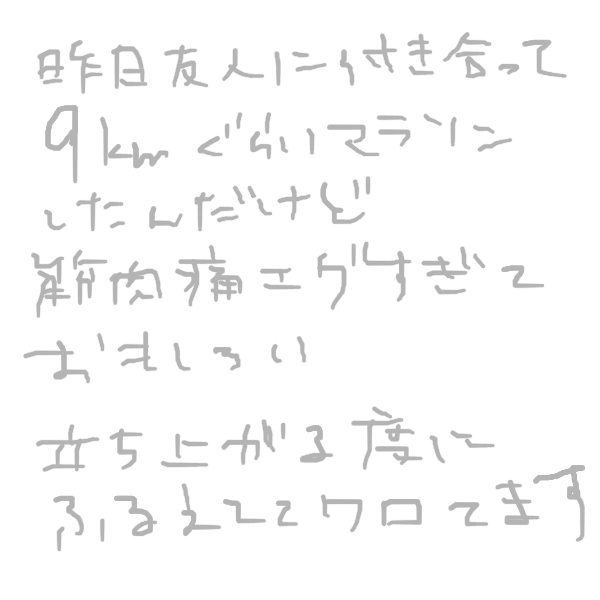 昨日友人に付き合って
9kmぐらいマラソン
したんだけど
筋肉痛エグすぎて
おもしろい
立ち上がる度に
ふるえててワロてます